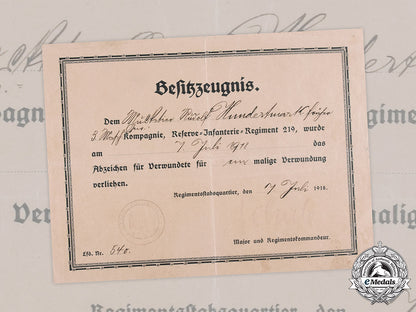 Besitzeugnis.
Dem Musketier Rudolf Hundertmark früher
3. Kompagnie, Reserve-Infanterie-Regiment 219, wurde
am 7. Juli 1918 das
Abzeichen für Verwundete für ein malige Verwundung
verliehen.
Regimentsstabsquartier, den 7. Juli 1918.
Major und Regimentskommandeur.
Lfd. Nr. 540.
eMedals